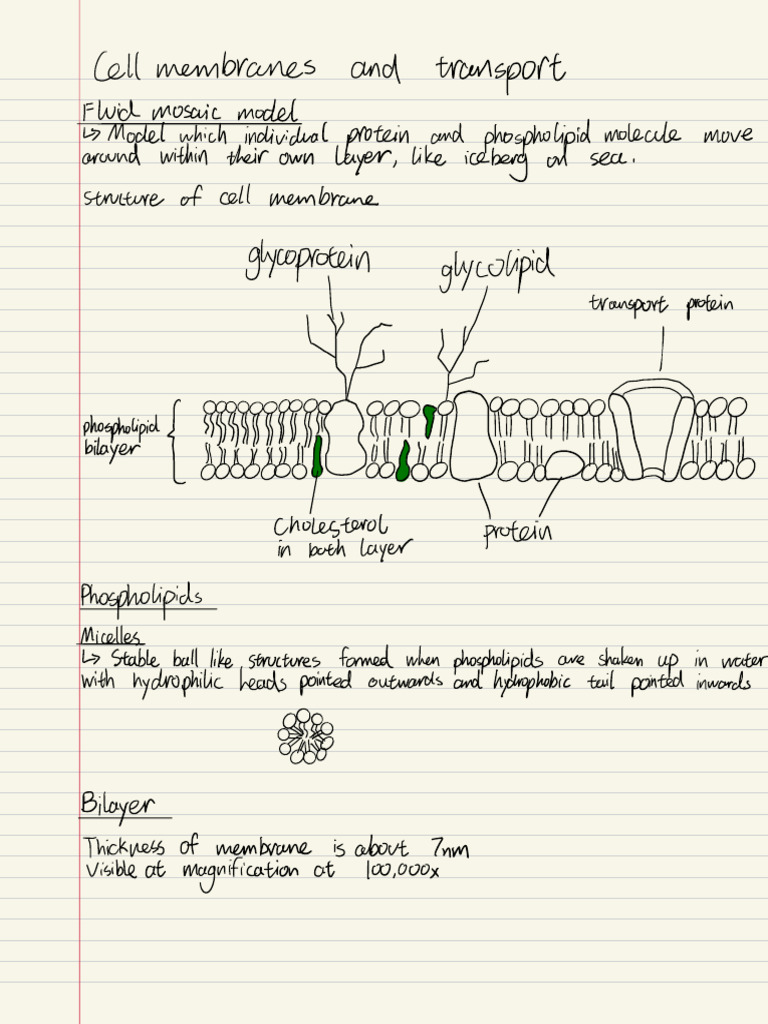 Cell membranes and transport
Fluid mosaic model
↳ Model which individual protein and phospholipid molecule move
around within their own layer, like iceberg on sea.
Structure of cell membrane
glycoprotein
glycolipid
transport protein
phospholipid
bilayer
Cholesterol
in both layer
protein
Phospholipids
Micelles
↳ Stable ball like structures formed when phospholipids are shaken up in water
with hydrophilic heads pointed outwards and hydrophobic tail pointed inwards
Bilayer
Thickness of membrane is about 7nm
Visible at magnification at 100,000x